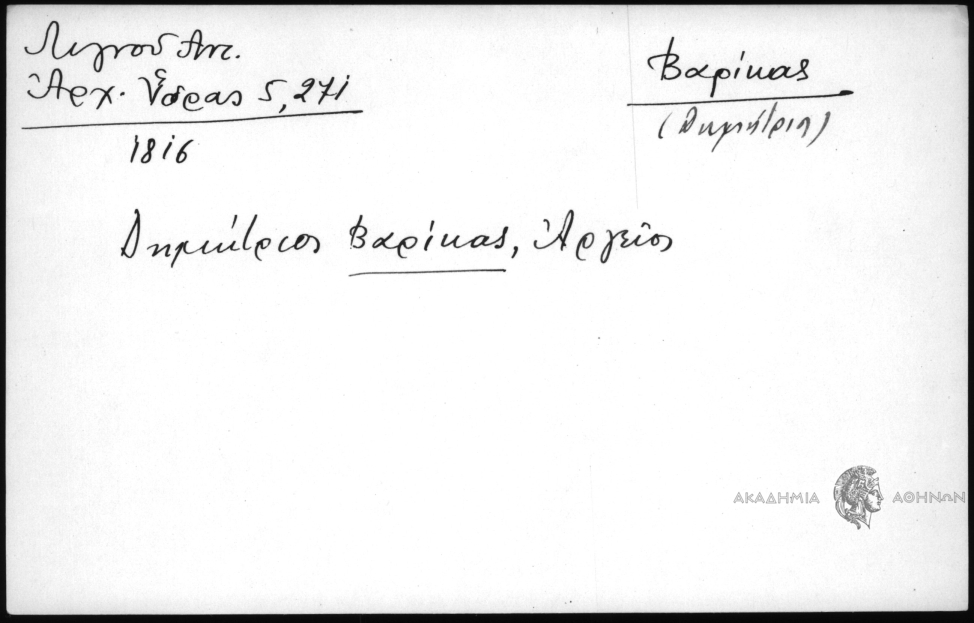 Λιγνοῦ Ἀντ.
Ἀρχ. Ὕδρας 5, 271
1816
Βαρίκας
(Δημήτριος)
Δημήτριος Βαρίκας, Ἀργεῖος
ΑΚΑΔΗΜΙΑ ΑΘΗΝΩΝ